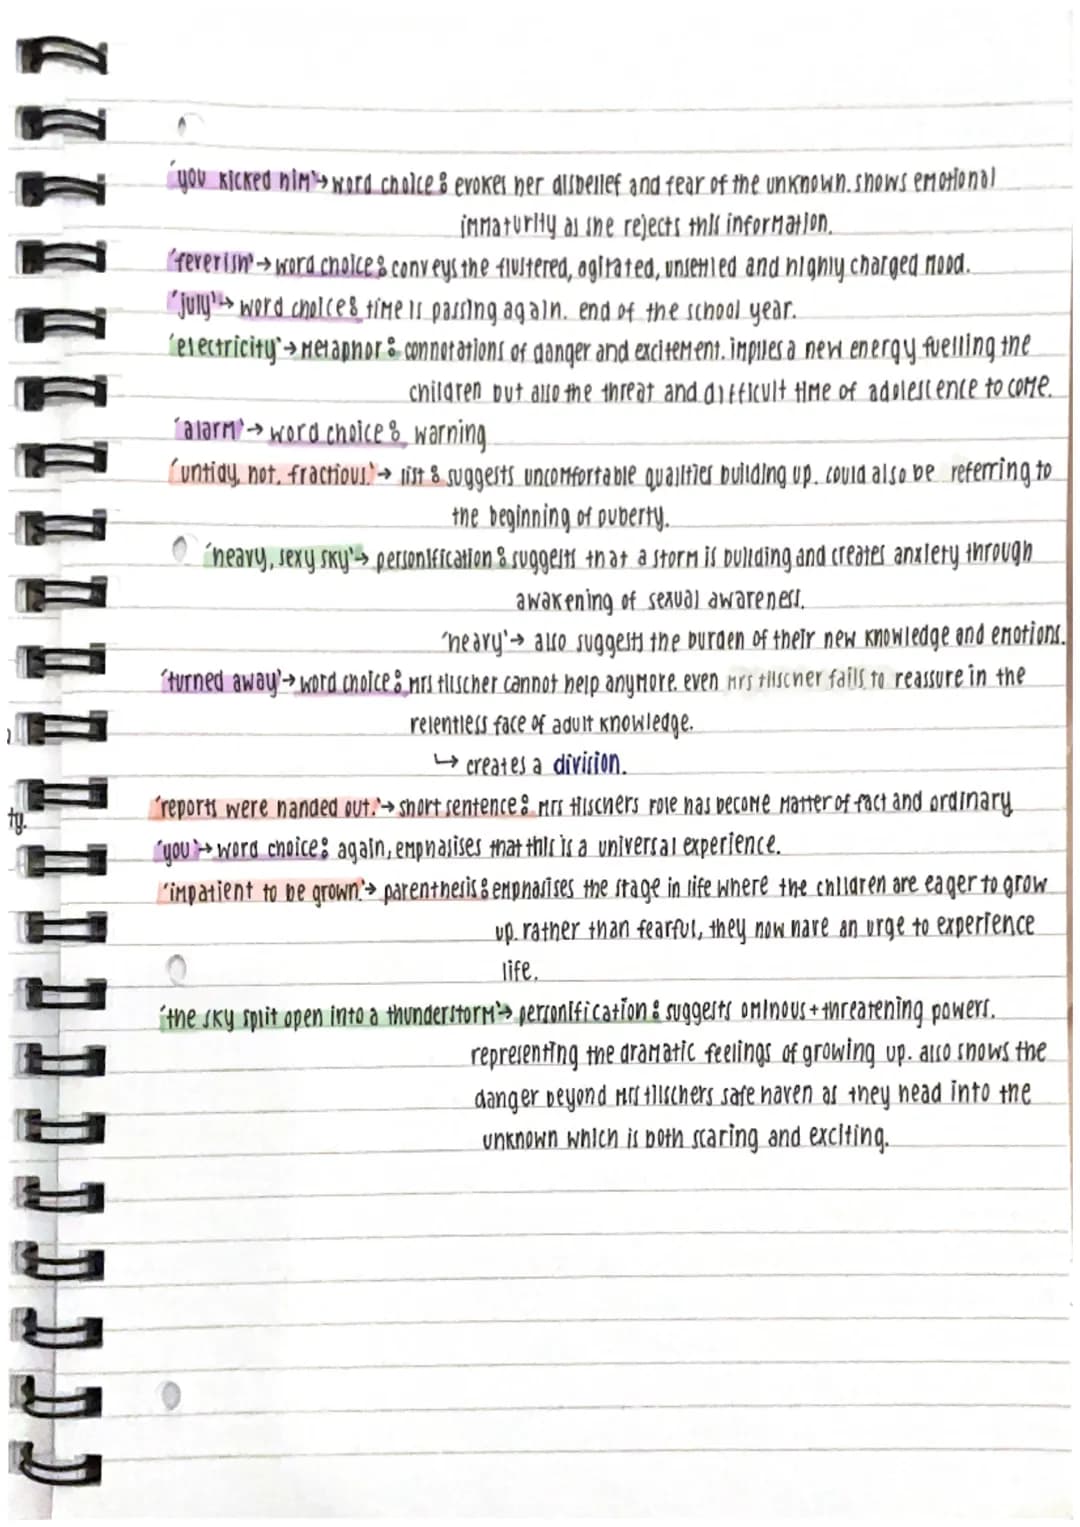 'you kicked him'→word choice: evokes her disbelief and fear of the unknown. shows emotional
immaturity as she rejects this information.
'feverish'→word choice: conveys the flustered, agitated, unsettled and highly charged mood.
'july'→ word choice: time is passing again. end of the school year.
'electricity'→metaphor: connotations of danger and excitement. implies a new energy fuelling the
children but also the threat and difficult time of adolescence to come.
'alarm'→ word choice: warning
'untidy, hot, fractious.'→ list: suggests uncomfortable qualities building up. could also be referring to
the beginning of puberty.
'heavy, sexy sky'→ personification: suggests that a storm is building and creates anxiety through
awakening of sexual awareness.
'heavy'→ also suggests the burden of their new knowledge and emotions.
'turned away'→word choice: mrs tilscher cannot help anymore. even mrs tilscher fails to reassure in the
relentless face of adult knowledge.
↳ creates a division.
'reports were handed out.'→short sentence: mrs tilschers role has become matter of fact and ordinary
ty.
'you'→word choice: again, emphasises that this is a universal experience.
'impatient to be grown.'→ parenthesis: emphasises the stage in life where the children are eager to grow
up. rather than fearful, they now have an urge to experience
life.
'the sky split open into a thunderstorm'→ personification: suggests ominous + threatening powers.
representing the dramatic feelings of growing up. also shows the
danger beyond mrs tilschers safe haven as they head into the
unknown which is both scaring and exciting.